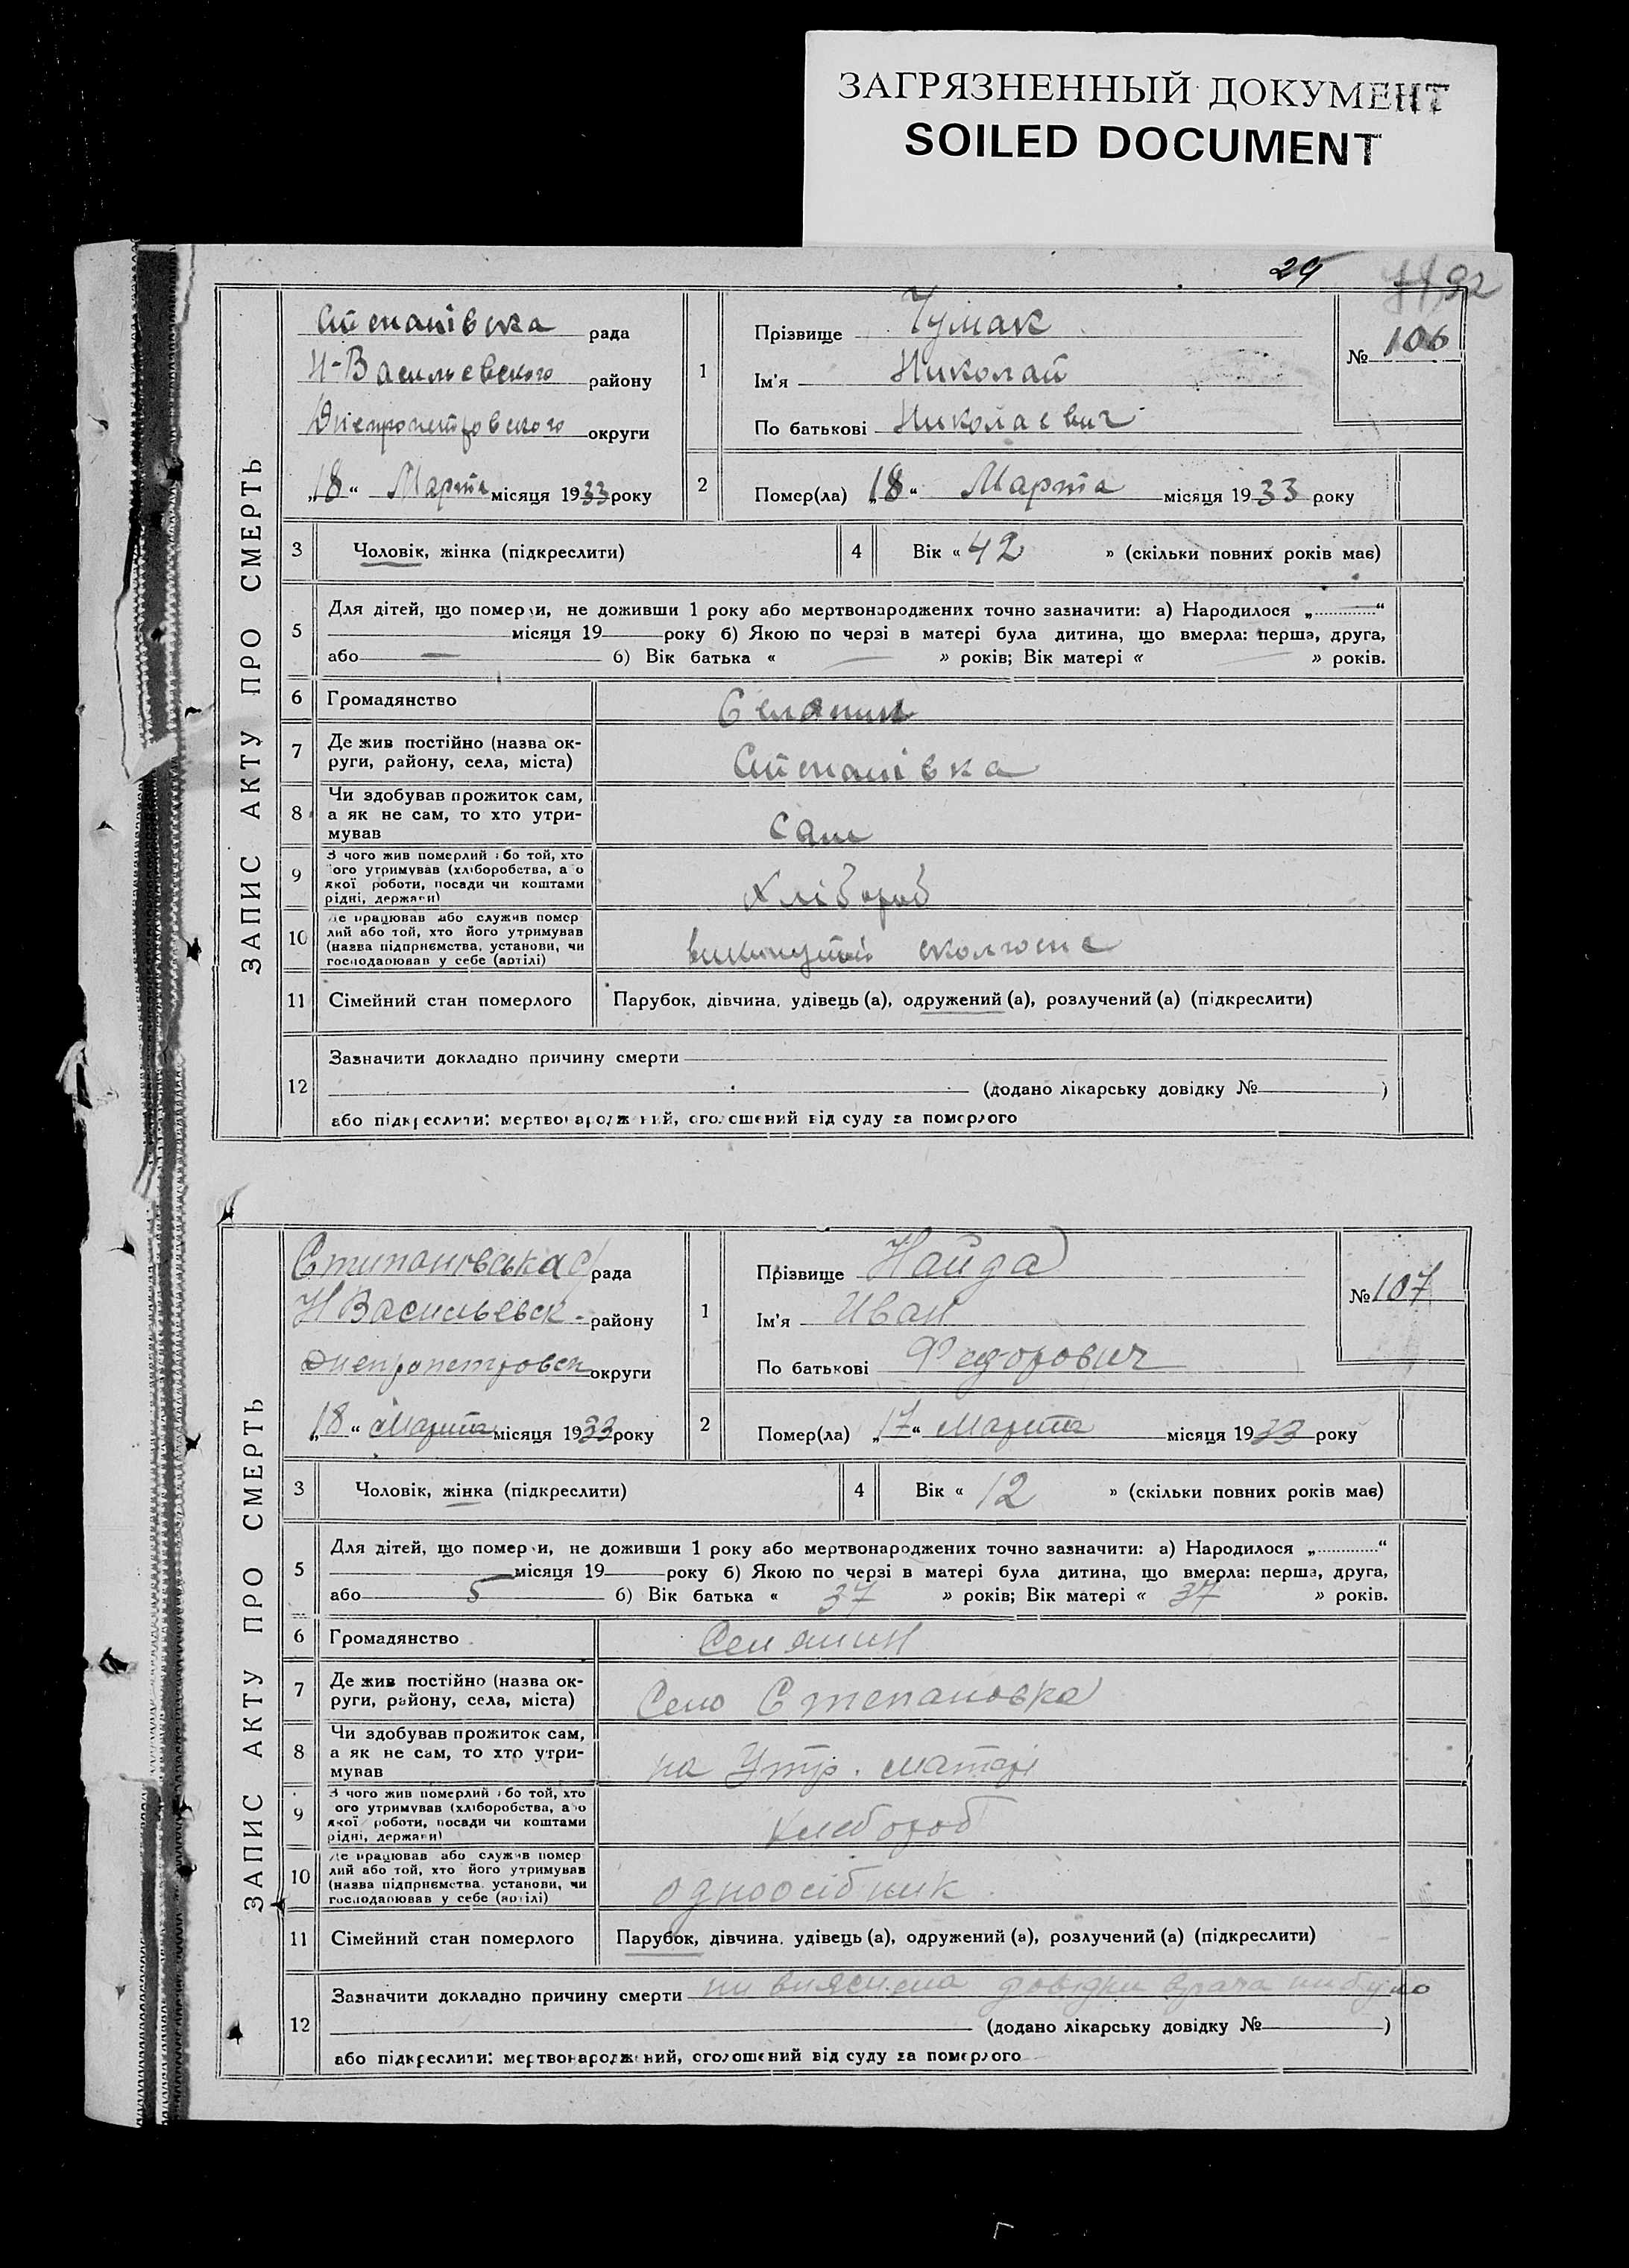 ЗАГРЯЗНЕННЫЙ ДОКУМЕНТ
SOILED DOCUMENT
29
92
ЗАПИС АКТУ ПРО СМЕРТЬ
Степанівска рада
Н-Васильевского району
Дніепропетровского округи
„18“ Марта місяця 1933 року
1
Прізвище Чумак
Ім'я Николай
По батькові Николаевич
№ 106
2
Помер(ла) „18“ Марта місяця 1933 року
3 Чоловік, жінка (підкреслити)
4 Вік « 42 » (скільки повних років має)
5 Для дітей, що померли, не доживши 1 року або мертвонароджених точно зазначити: а) Народилося „ “
місяця 19 року б) Якою по черзі в матері була дитина, що вмерла: перша, друга,
або — б) Вік батька « — » років; Вік матері « — » років.
6 Громадянство Селянин
7 Де жив постійно (назва ок-
руги, району, села, міста) Степанівка
8 Чи здобував прожиток сам,
а як не сам, то хто утри-
мував сам
9 З чого жив померлий або той, хто
його утримував (хліборобства, або
якої роботи, посади чи коштами
рідні, держави) Хлібороб
10 Де працював або служив помер
лий або той, хто його утримував
(назва підприємства, установи, чи
господарював у себе (артілі)
11 Сімейний стан померлого Парубок, дівчина, удівець (а), одружений (а), розлучений (а) (підкреслити)
12 Зазначити докладно причину смерти
(додано лікарську довідку № )
або підкреслити: мертвонароджений, оголошений від суду за померлого
ЗАПИС АКТУ ПРО СМЕРТЬ
Стипановська с/рада
Н Васильевск. району
Днепропетровск округи
„18“ Марта місяця 1933 року
1
Прізвище Найда
Ім'я Иван
По батькові Федорович
№ 107
2
Помер(ла) „17“ Марта місяця 1933 року
3 Чоловік, жінка (підкреслити)
4 Вік « 12 » (скільки повних років має)
5 Для дітей, що померли, не доживши 1 року або мертвонароджених точно зазначити: а) Народилося „ “
місяця 19 року б) Якою по черзі в матері була дитина, що вмерла: перша, друга,
або 5 б) Вік батька « 37 » років; Вік матері « 37 » років.
6 Громадянство Селянин
7 Де жив постійно (назва ок-
руги, району, села, міста) Село Степановка
8 Чи здобував прожиток сам,
а як не сам, то хто утри-
мував на Утр. матері
9 З чого жив померлий або той, хто
його утримував (хліборобства, або
якої роботи, посади чи коштами
рідні, держави) хлебороб
10 Де працював або служив помер
лий або той, хто його утримував
(назва підприємства, установи, чи
господарював у себе (артілі) одноосібник
11 Сімейний стан померлого Парубок, дівчина, удівець (а), одружений (а), розлучений (а) (підкреслити)
12 Зазначити докладно причину смерти ни вияснена довідки врача нибуло
(додано лікарську довідку № )
або підкреслити: мертвонароджений, оголошений від суду за померлого